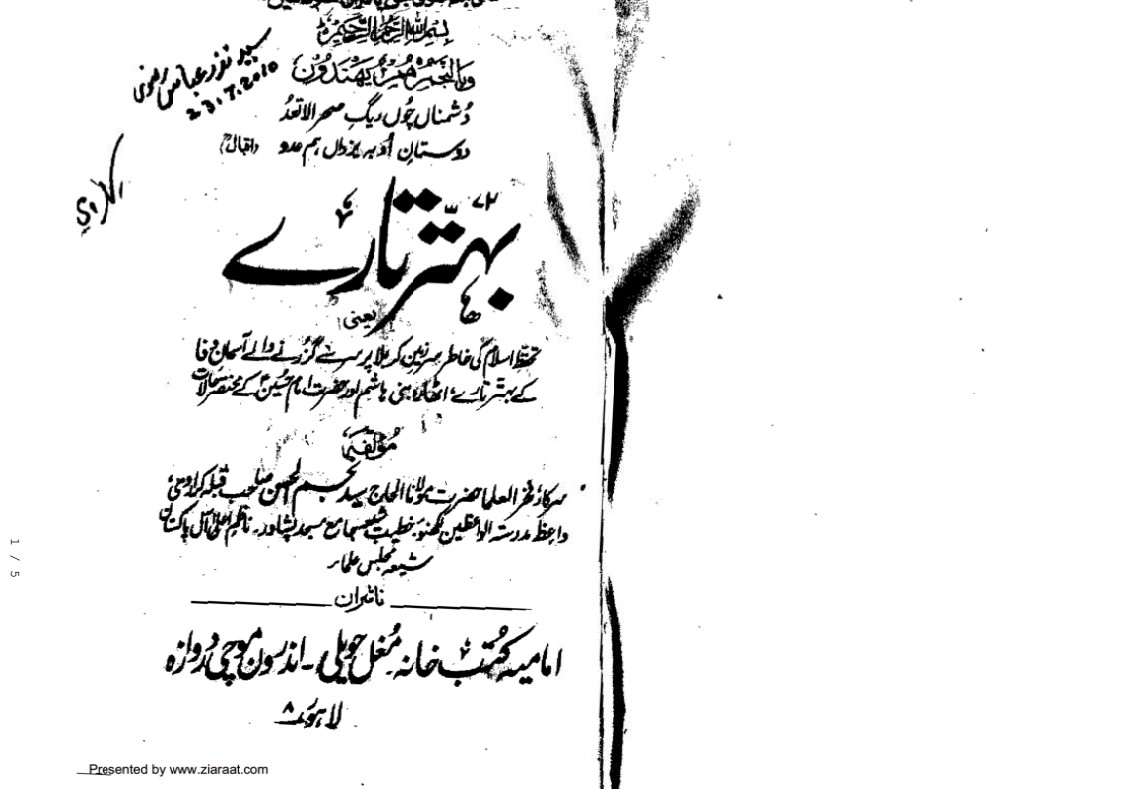 بِسْمِ اللّٰهِ الرَّحْمٰنِ الرَّحِيْمِ
وَبِالنَّجْمِ هُمْ يَهْتَدُوْنَ
سید نذر عباس رضوی
23.7.2010
دُشمناں چُوں ریگِ صحرا لاتعدُ
دوستانِ اُو بہ یزداں ہم عدد (اقبالؒ)
کراچی
۷۲
بہتّر تارے
یعنی
تحفّظِ اسلام کی خاطر سرزمینِ کربلا پر سر سے گزرنے والے آسمانِ وفا
کے بہتّر تارے، اٹھارہ بنی ہاشم اور حضرت امام حُسینؑ کے مختصر حالات
مؤلفہ
سرکار فخر العلما حضرت مولانا الحاج سید نجم الحسن صاحب قبلہ کراروی
واعظ مدرستہ الواعظین لکھنو۔ خطیب شیعہ جامع مسجد پشاور۔ ناظمِ اعلیٰ آل پاکستان
شیعہ مجلس علماء
ناشران
امامیہ کُتب خانہ مُغل حویلی۔ اندرون موچی دروازہ
لاہور ۸
Presented by www.ziaraat.com
1 / 5